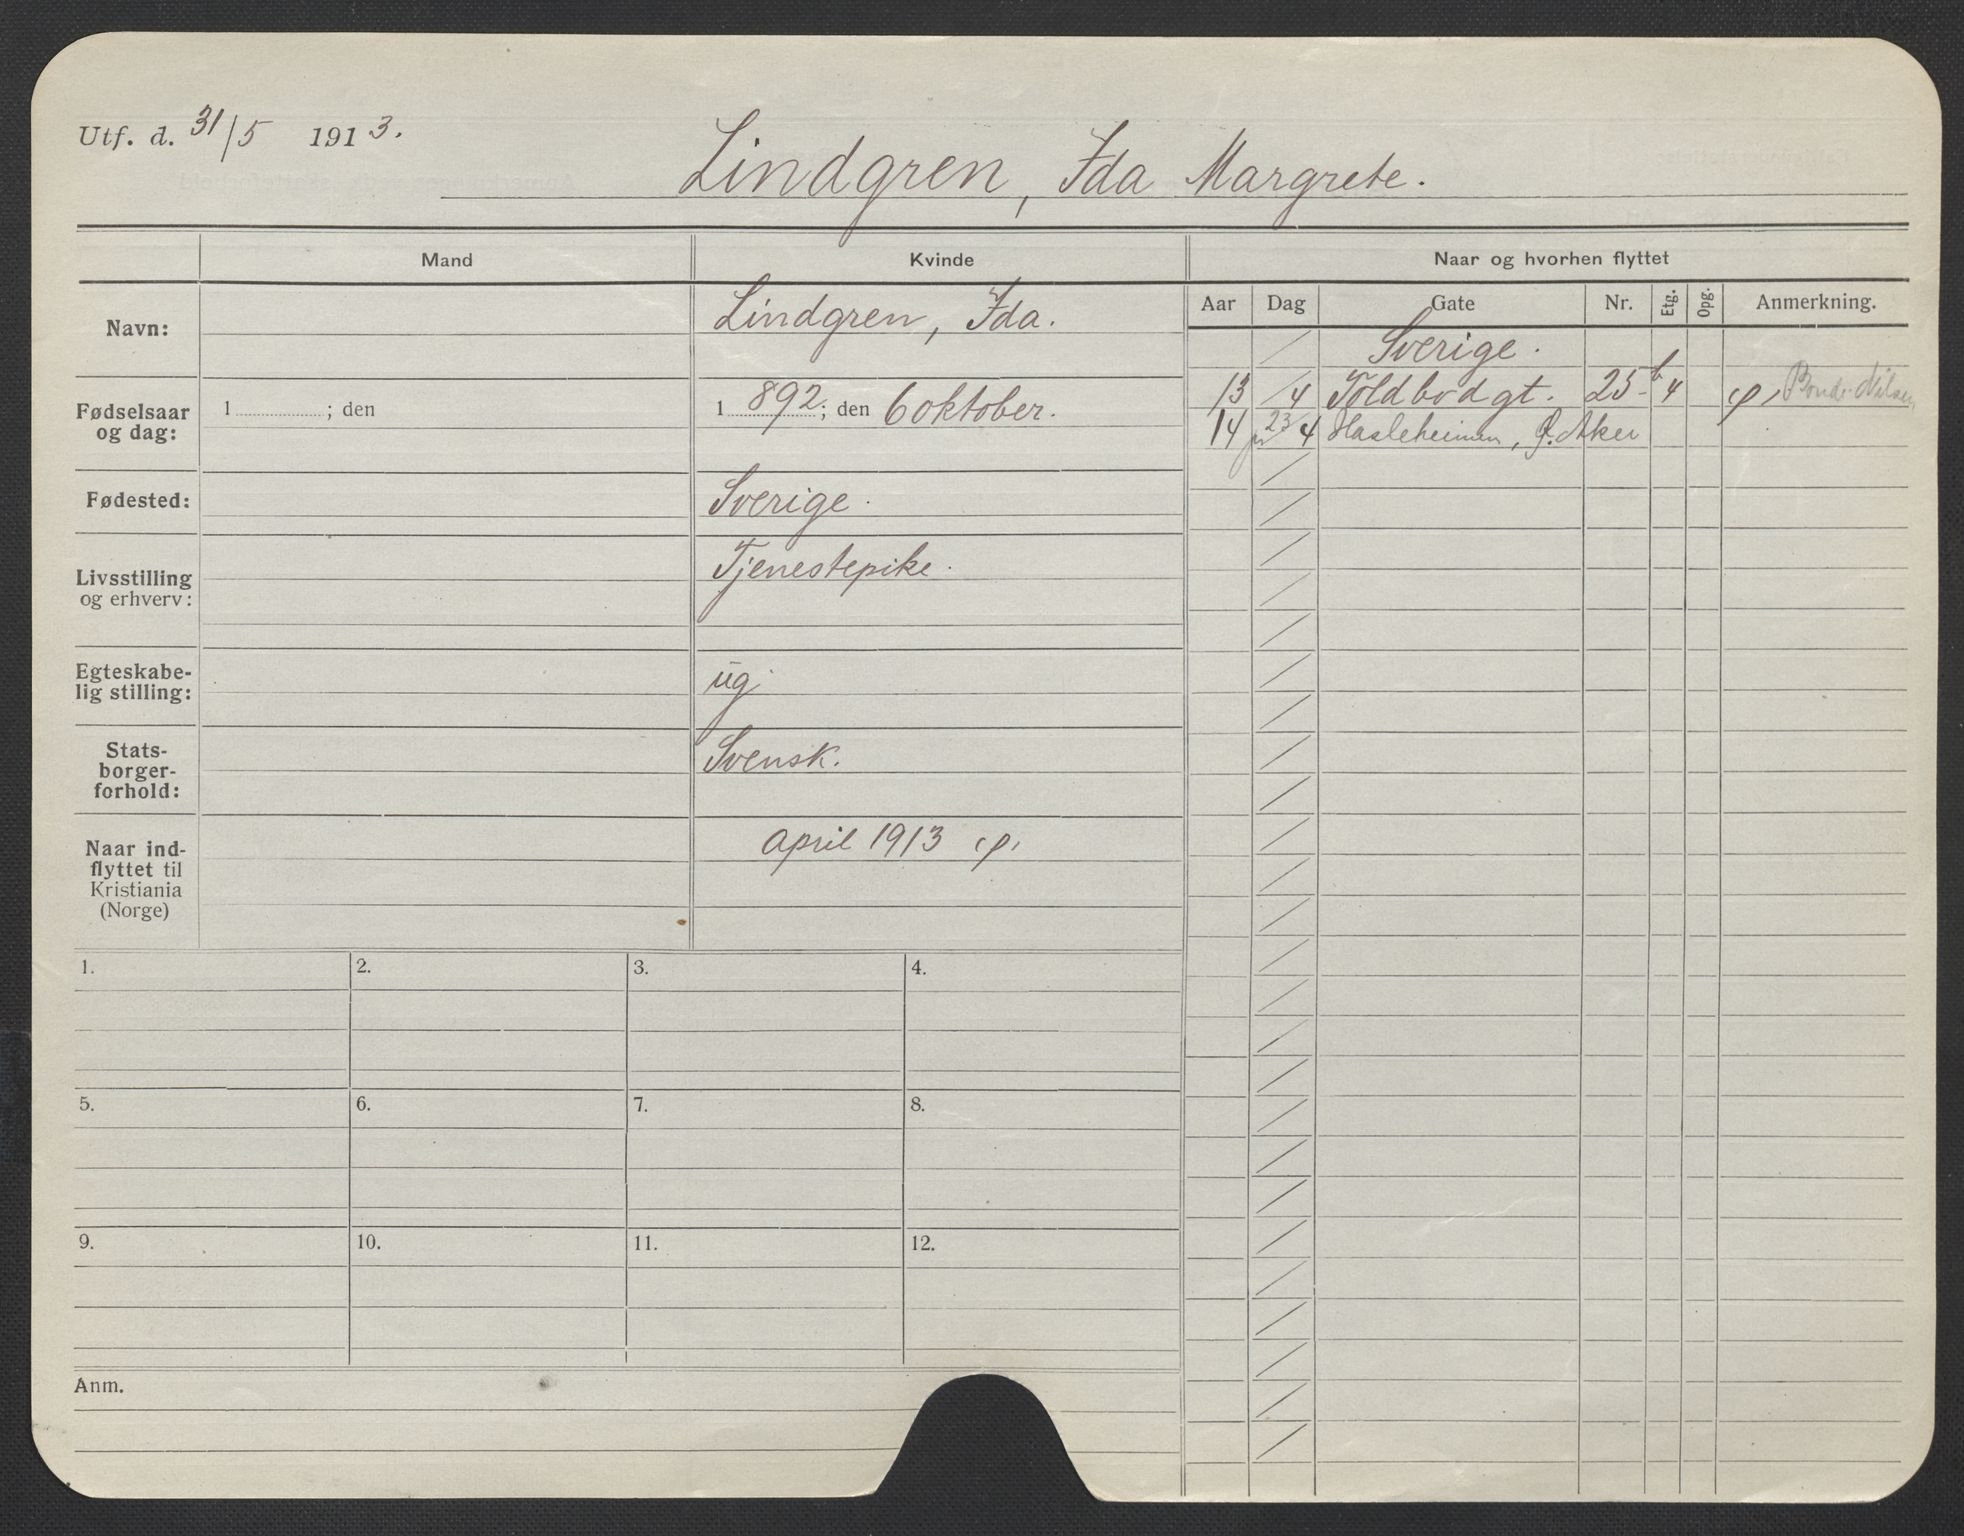 Utf. d. 31/5 1913.
Lindgren, Ida Margrete.
Mand
Kvinde
Naar og hvorhen flyttet
Aar Dag Gate Nr. Etg. Opg. Anmerkning.
Navn:
Lindgren, Ida.
Fødselsaar
og dag:
1 ; den
1 892 ; den 6 oktober.
Fødested:
Sverige.
Livsstilling
og erhverv:
Tjenestepike.
Egteskabe-
lig stilling:
ug
Stats-
borger-
forhold:
Svensk.
Naar ind-
flyttet til
Kristiania
(Norge)
april 1913
Sverige.
13 /4 Toldbodgt. 25 b 4 Nilsen
14 23/4 Hasleheimen, Ø. Aker
1. 2. 3. 4.
5. 6. 7. 8.
9. 10. 11. 12.
Anm.